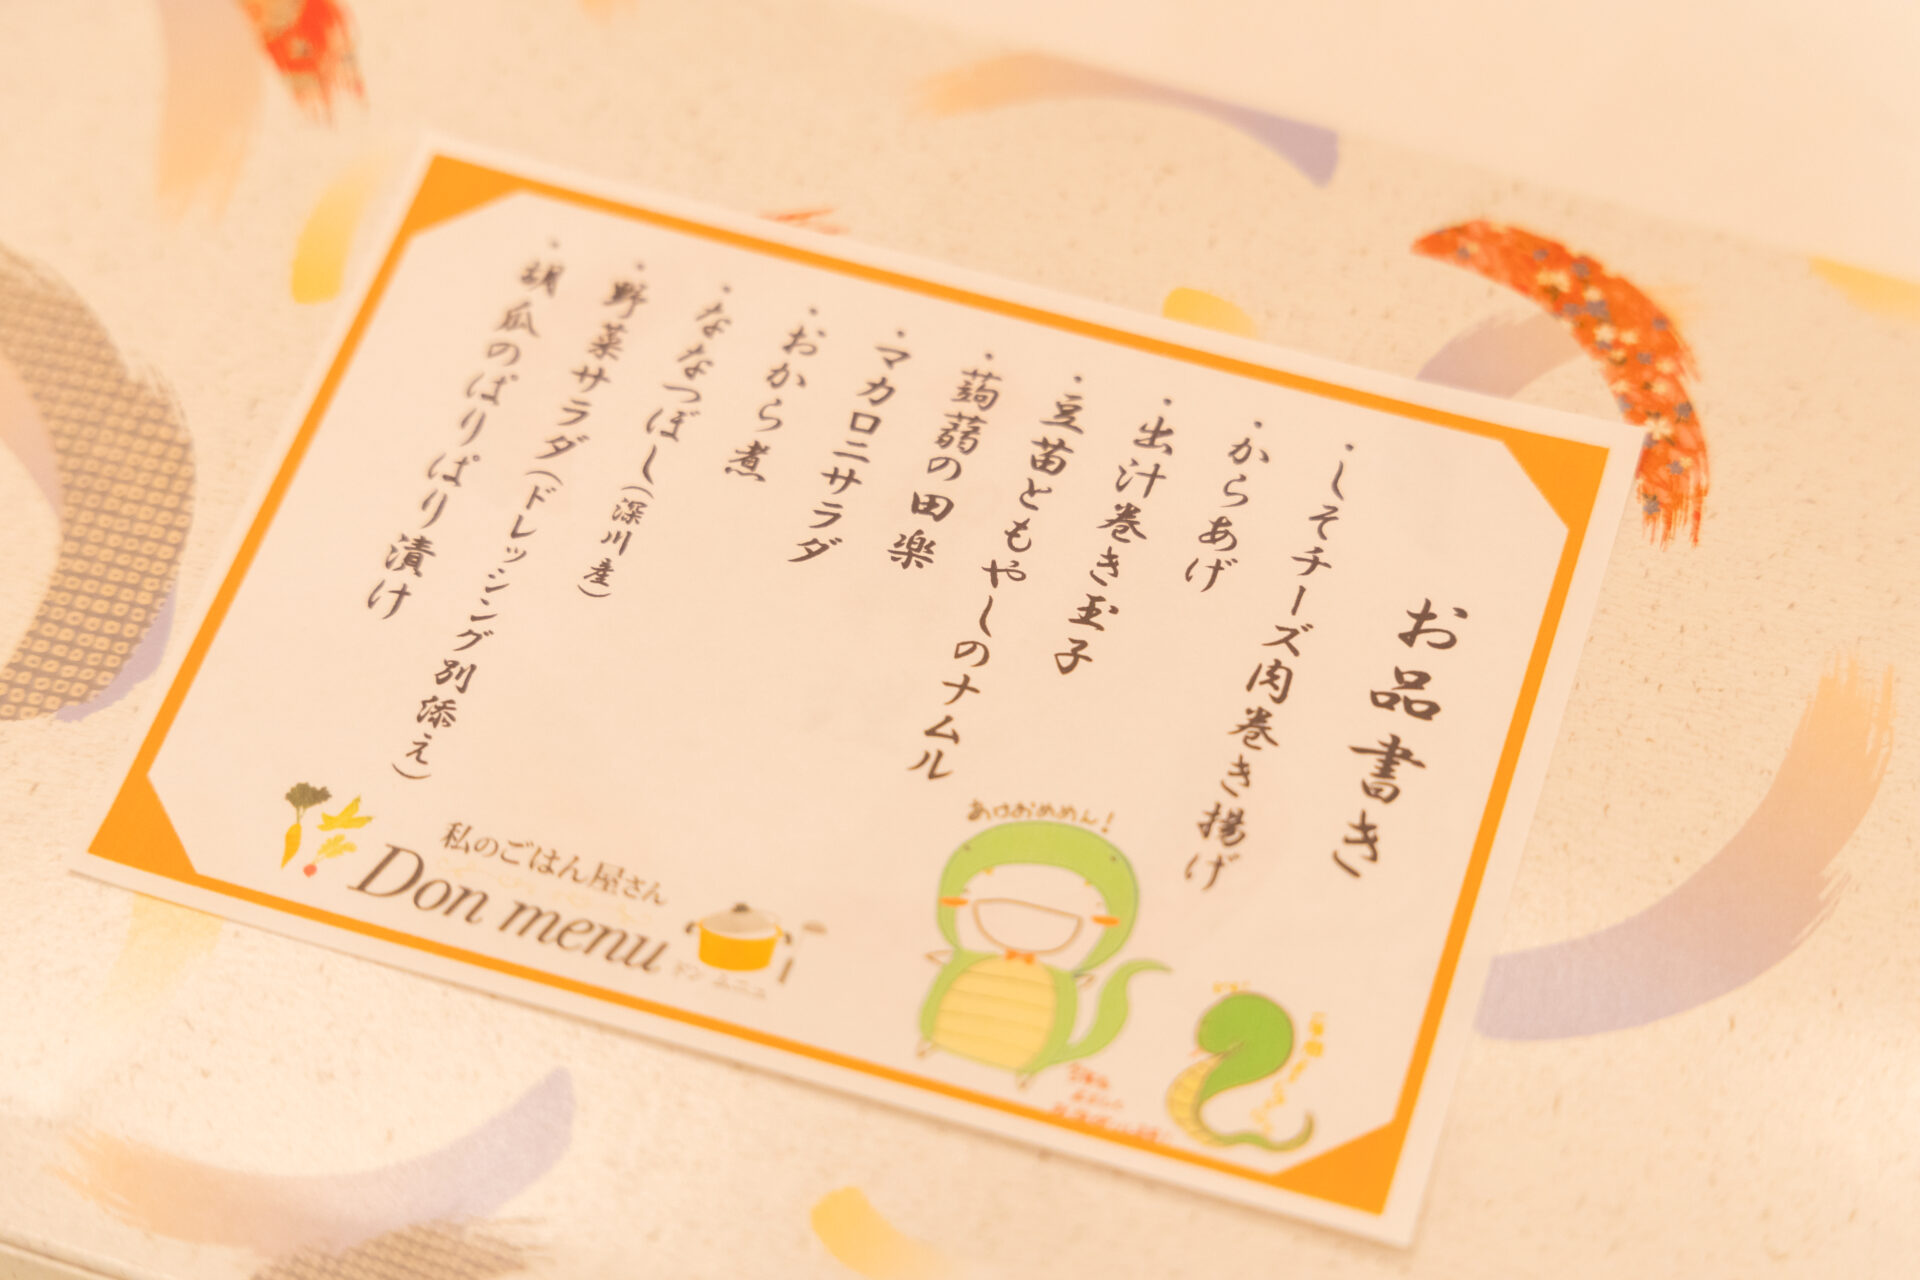 お品書き
・しそチーズ肉巻き揚げ
・からあげ
・出汁巻き玉子
・豆苗ともやしのナムル
・蒟蒻の田楽
・マカロニサラダ
・おから煮
・ななつぼし(深川産)
・野菜サラダ(ドレッシング別添え)
・胡瓜のぱりぱり漬け
あけおめめん!
私のごはん屋さん
Don menu
ドン メニュ